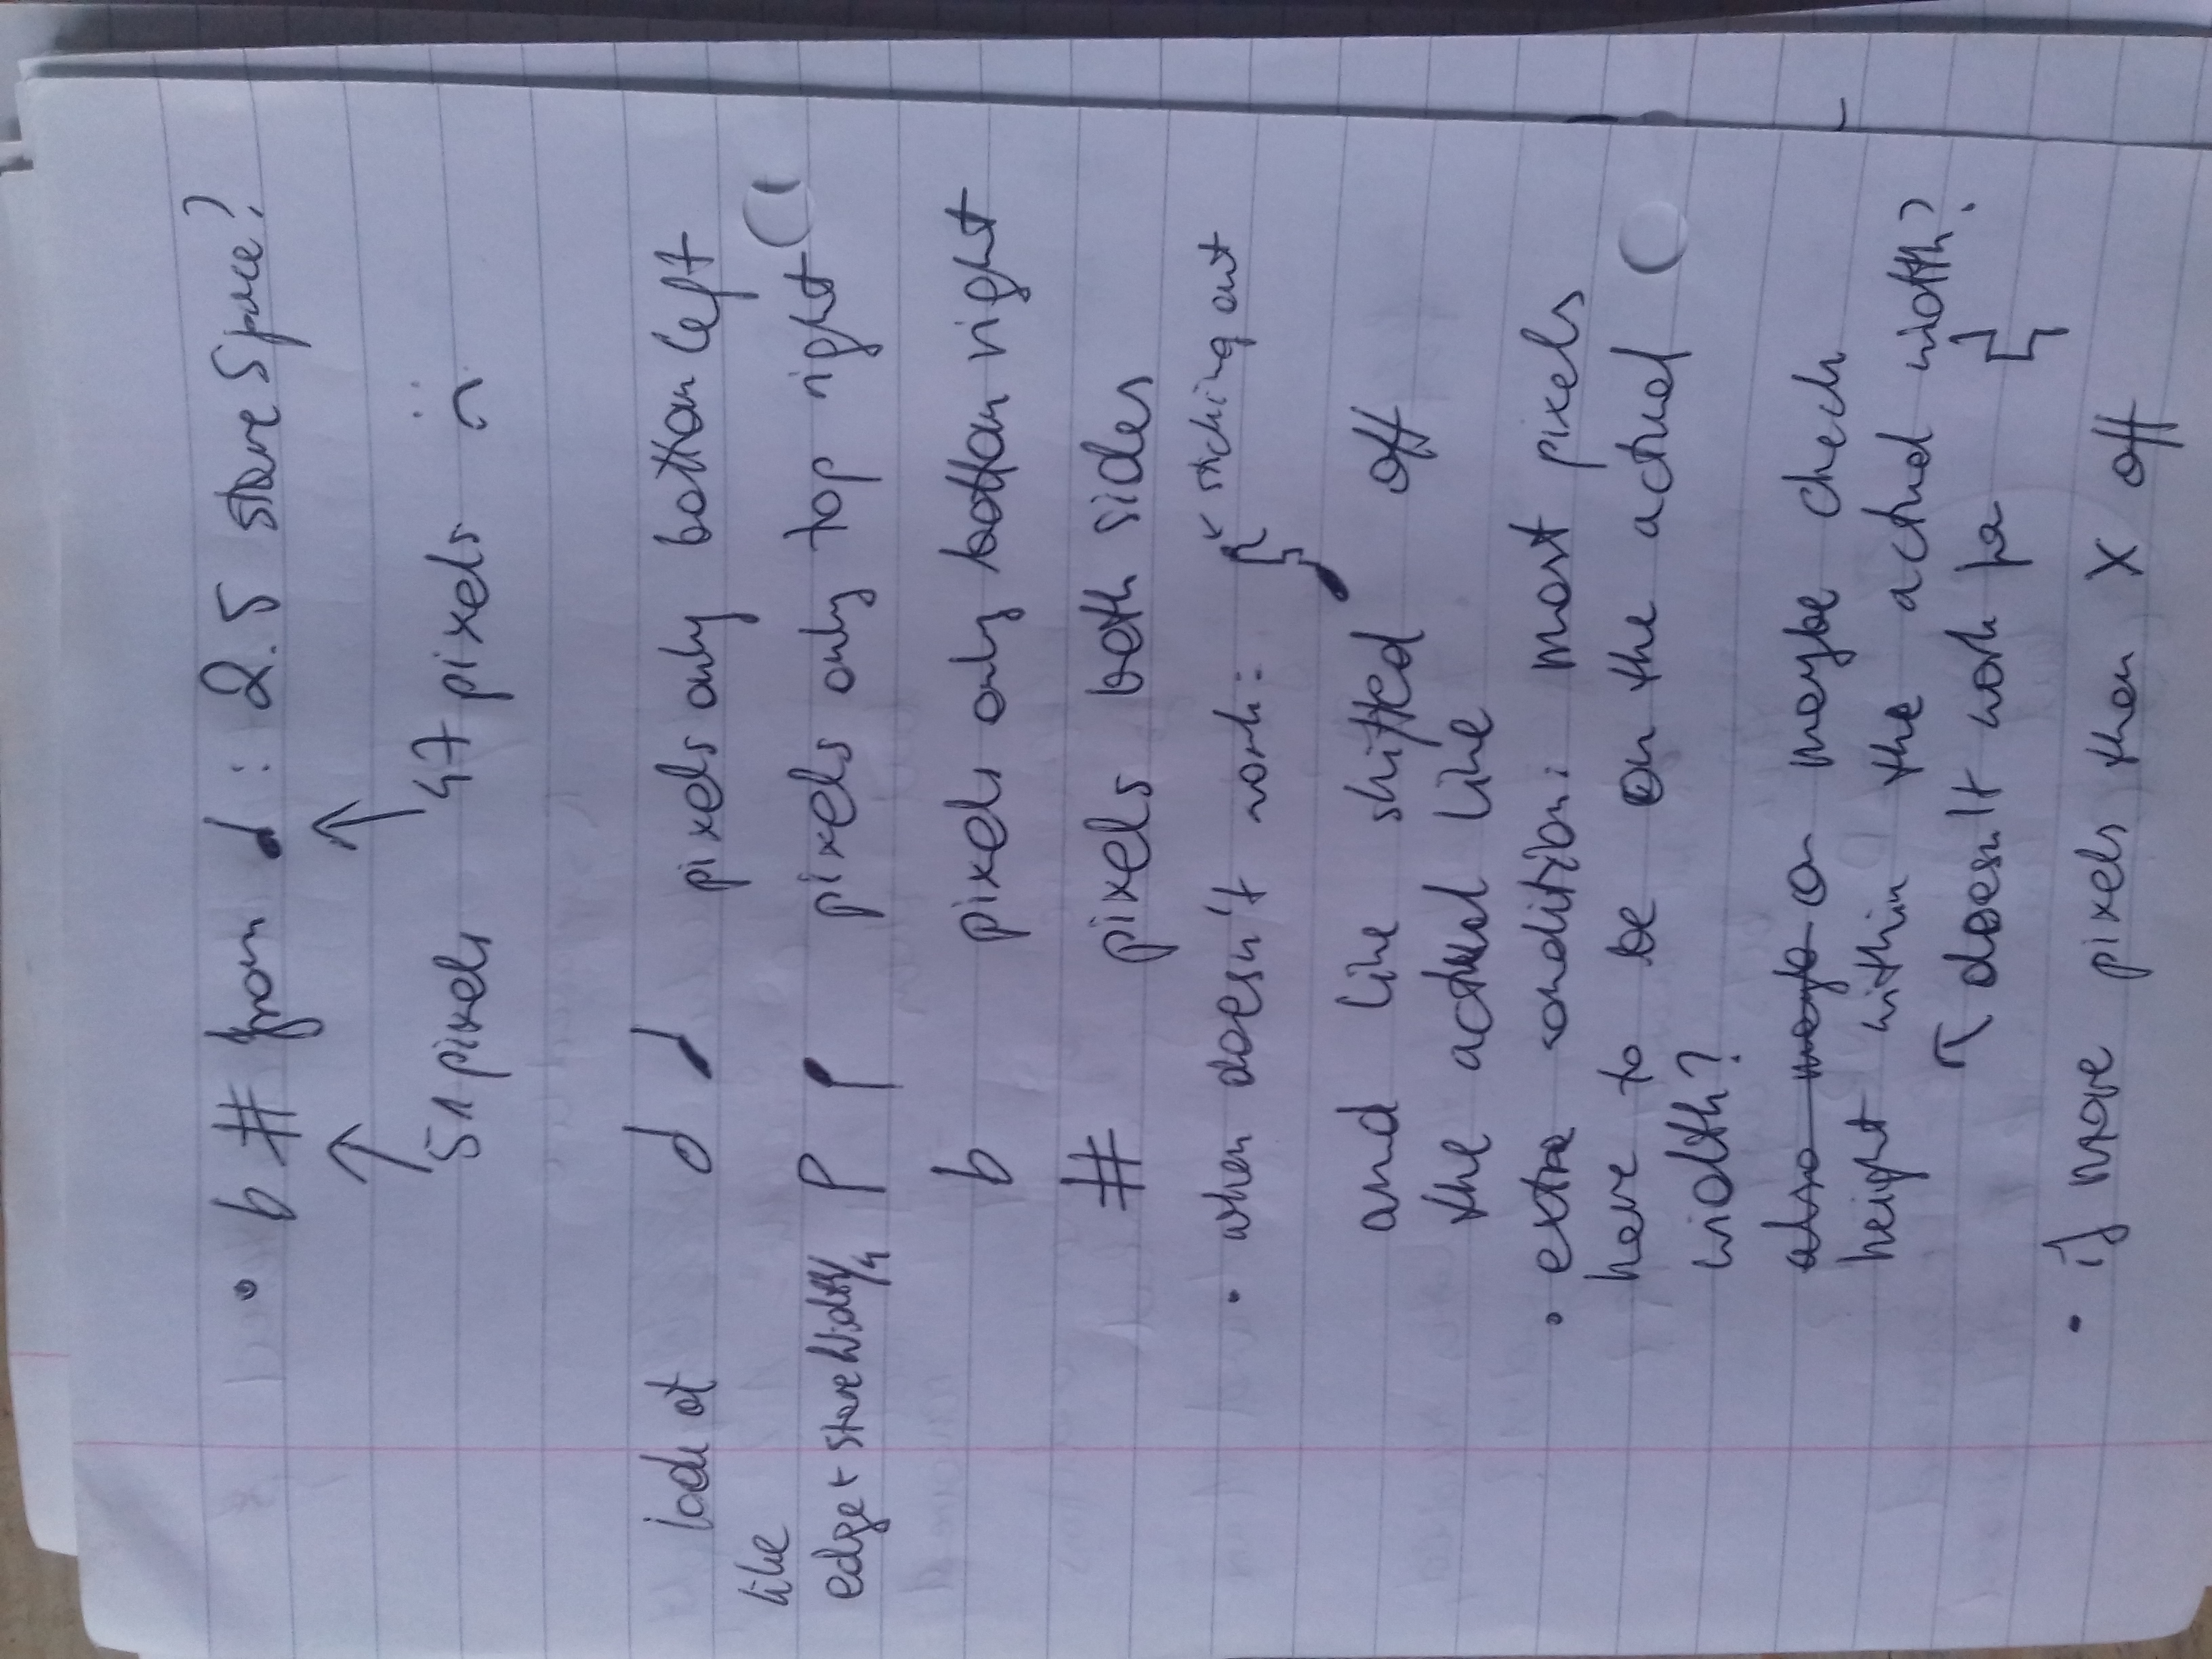 • b # from ♩ : 2.5 staveSpace?
51 pixels 47 pixels :(
look at pixels only bottom left
like
edge + staveWidth/4 pixels only top right
b pixels only bottom right
# pixels both sides
• when doesn't work: sticking out
and line shifted off
the actual line
• extra condition: most pixels
have to be on the actual
width?
also mayb or maybe check
height within the actual width?
doesn't work for
• if more pixels than X off